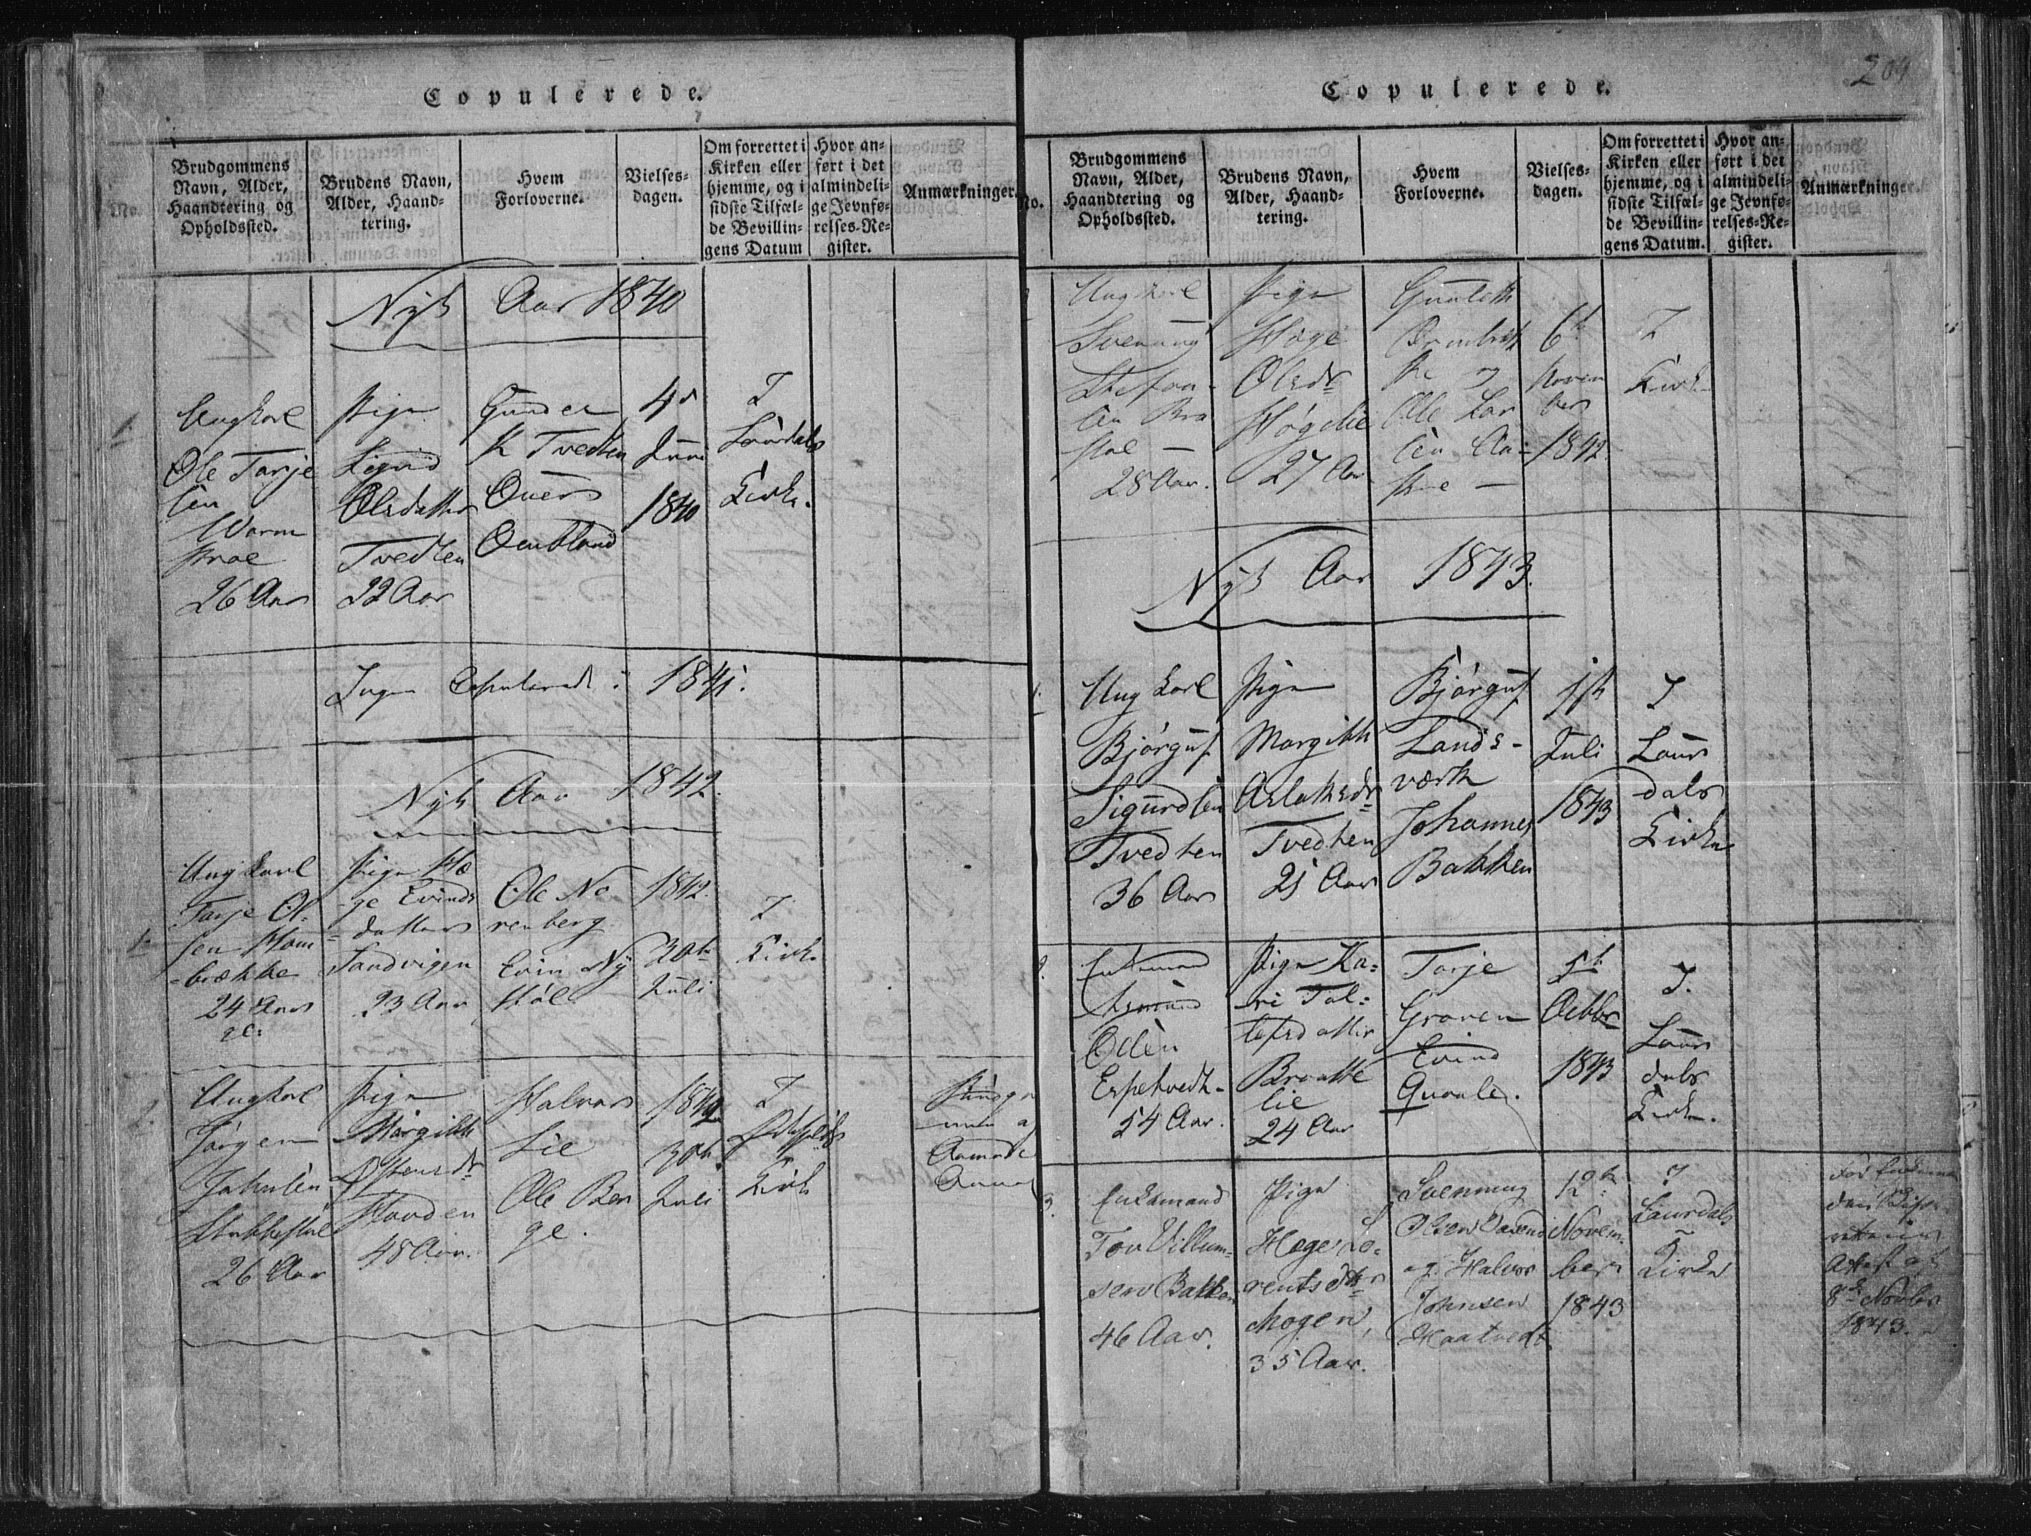 Copulerede.
No.
Brudgommens Navn, Alder, Haandtering og Opholdssted.
Brudens Navn, Alder, Haandtering.
Hvem Forloverne.
Vielsesdagen.
Om forrettet i Kirken eller hjemme, og i sidste Tilfælde Bevillingens Datum
Hvor anført i det almindelige Jevnførelses-Register.
Anmærkninger.
Nyt Aar 1840
Ungkarl
Ole Tarje
sen
26 Aar
Pige
Sigrid
Olsdatter
Tvedten
22 Aar
Gunder
K Tvedten
4de
Juni
1840
I
Laurdals
Kirke.
Ingen Copulerede i 1841.
Nyt Aar 1842.
1.
Ungkarl
Tarje Ol-
sen Ham
-brække
24 Aar
Pige Hæ
ge Evinds
datter
Sandvigen
23 Aar
Ole No
renberg
Evin Ny
støl
1842.
30te
Juli
I
Kirke
Ungkarl
Jørgen
26 Aar
Pige
Margith
Hauden
45 Aar.
Halvor
Lie
Ole Ber
ge.
1842
30te
Juli
I
Kirke
Copulerede.
204
No.
Brudgommens Navn, Alder, Haandtering og Opholdssted.
Brudens Navn, Alder, Haandtering.
Hvem Forloverne.
Vielsesdagen.
Om forrettet i Kirken eller hjemme, og i sidste Tilfælde Bevillingens Datum.
Hvor anført i det almindelige Jevnførelses-Register.
Anmærkninger.
Ungkarl
Svenning
Stefan-
sen
28 Aar.
Pige
Hæge
Olsdr
Høgelie
27 Aar
Gunleik
og
Ole Lar
sen
6te
Novem
ber
1842
I
Kirke
Nyt Aar 1843.
1.
Ungkarl
Bjørguf
Sigurdsen
Tvedten
36 Aar
Pige
Margith
Aslaksdr
Tvedten
21 Aar
Bjørguf
Lands-
værk
Johannes
Bakken
1ste
Juli
1843
I
Laur
dals
Kirke
2.
Enkemand
Asmund
Olsen
Espetvedt-
54 Aar.
Pige Ka-
ri Tal-
lefsdatter
Bratte
lie
24 Aar
Tarje
Graven
Evind
Qvaale.
1te
Octbr
1843
I.
Laur
dals
Kirke.
3.
Enkemand
Tov Villum-
sen Bakken
46 Aar.
Pige
Hæge Lo-
rentsdtr
Mogen,
35 Aar.
Svenning
Olsen
og Halvor
Johnsen
Haatvedt
12te
Novem-
ber
1843
I
Laurdals
Kirke
For Enkeman
den
Attest af
8de Novbr
1843.